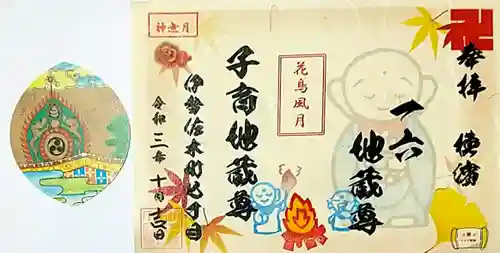 奉拝 横濱
一六
地蔵尊
花鳥風月
子育地蔵尊
伊勢佐木町四丁目
令和三年十一月吉日
神無月